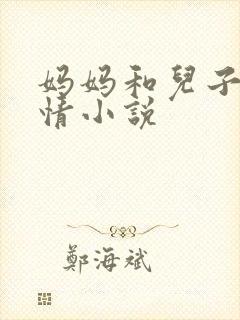 妈妈和兒子
情小説
鄭海斌